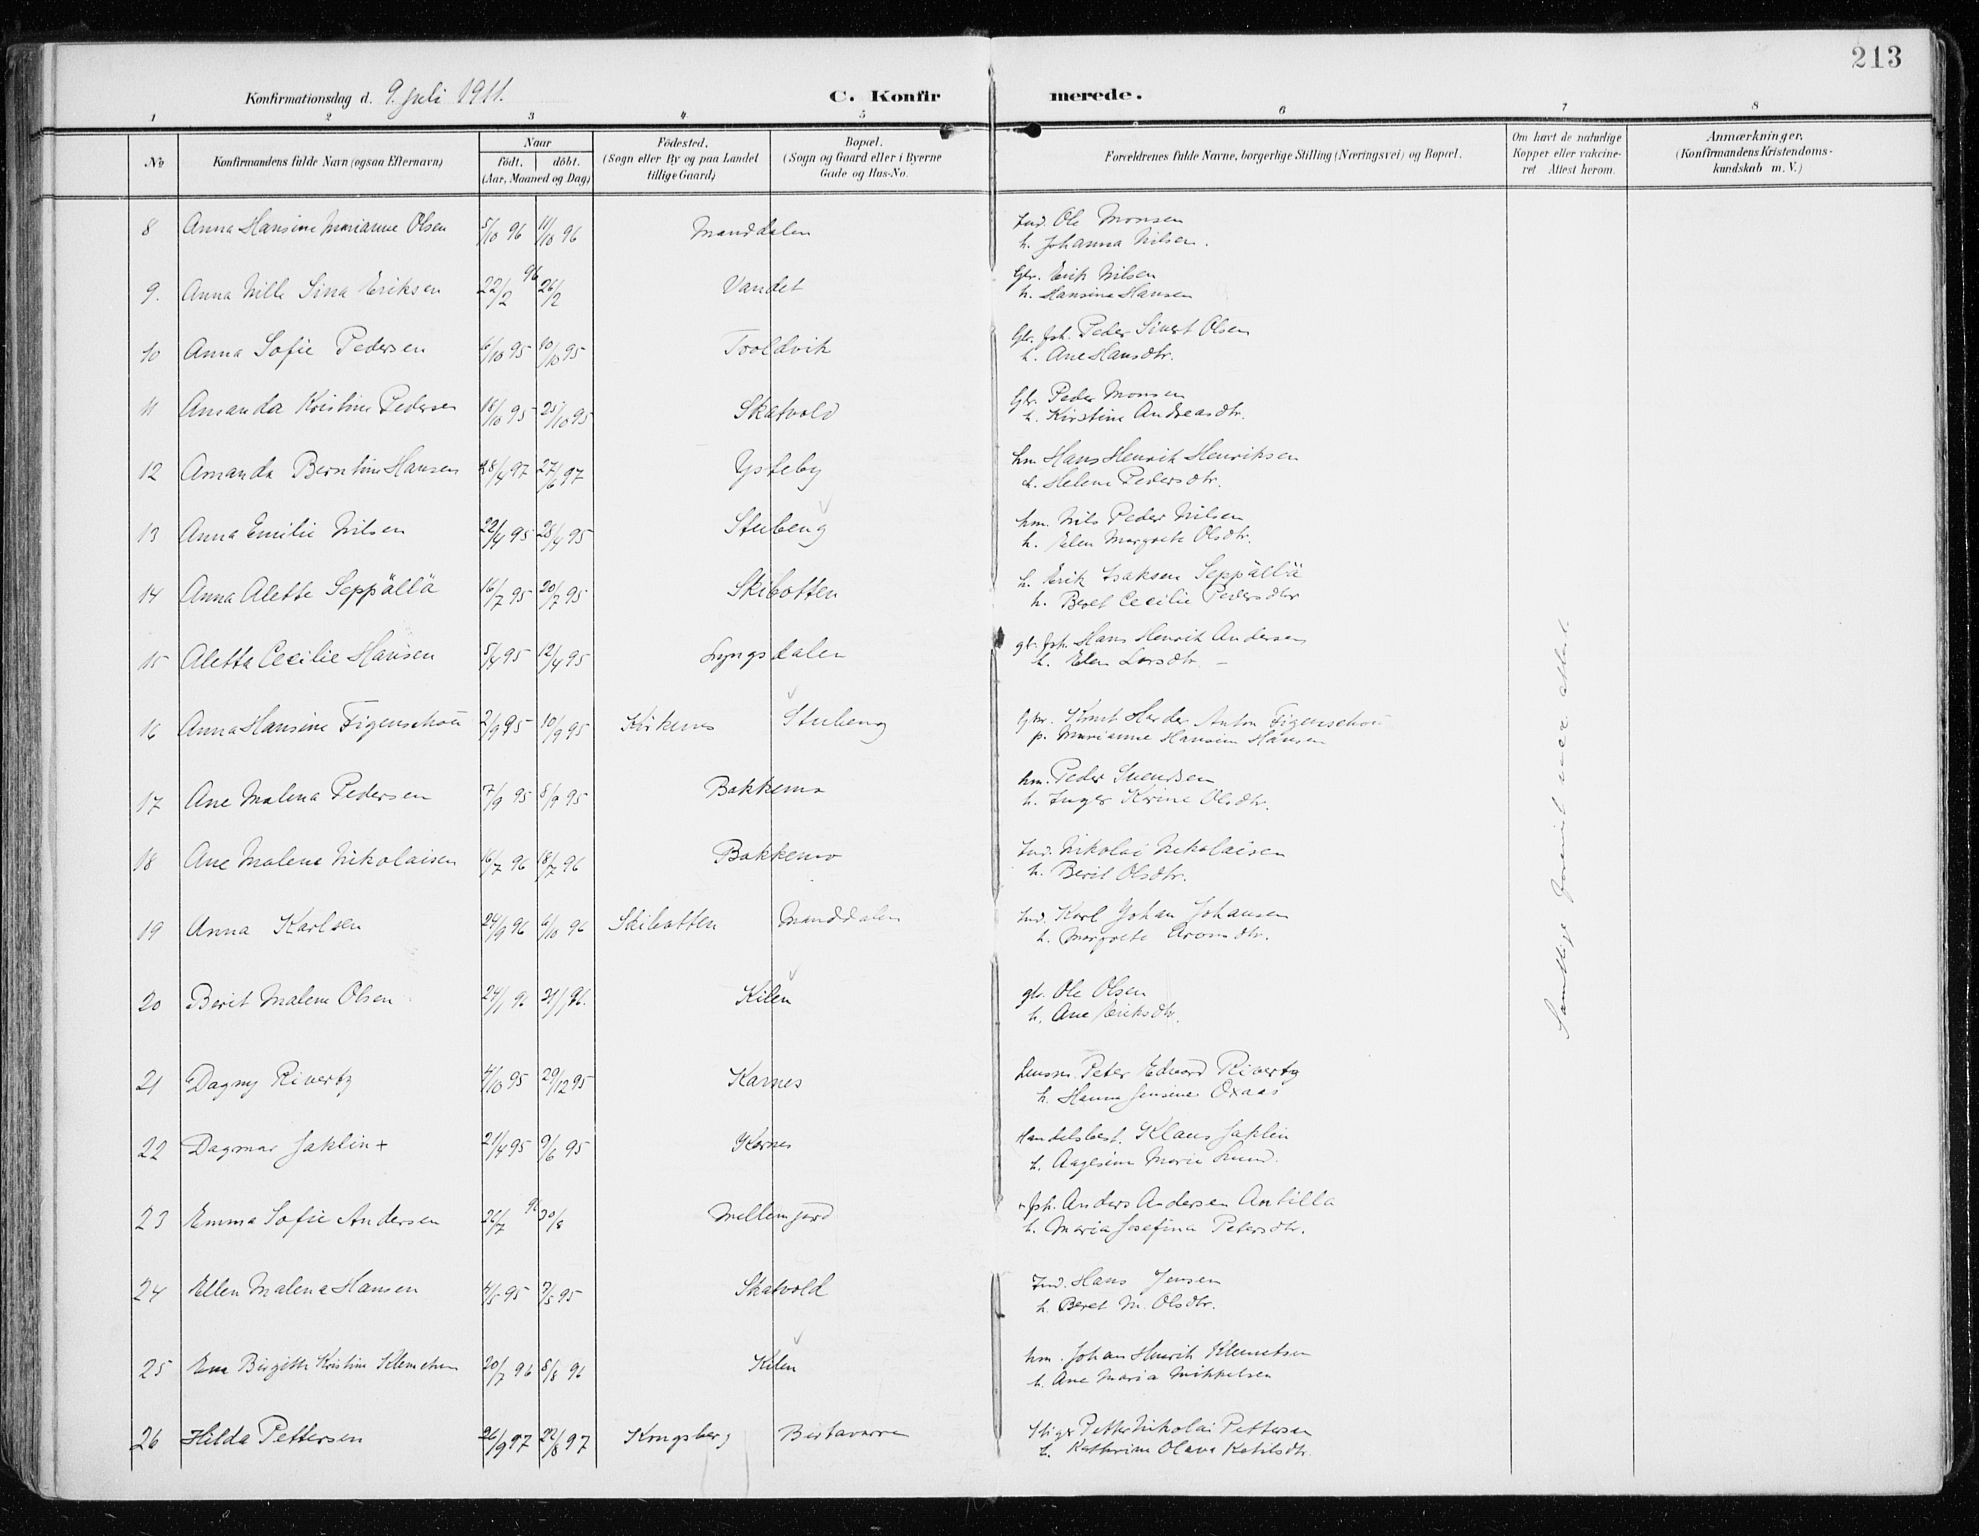 213
Konfirmationsdag d. 9. juli 1911.
C. Konfirmerede.
1 2 3 4 5 6 7 8
No
Konfirmandens fulde Navn (ogsaa Efternavn)
Naar
født. døbt.
(Aar, Maaned og Dag)
Fødested.
(Sogn eller By og paa Landet
tillige Gaard)
Bopæl.
(Sogn og Gaard eller i Byerne
Gade og Hus-No.
Forældrenes fulde Navne, borgerlige Stilling (Næringsvei) og Bopæl.
Om havt de naturlige
Kopper eller vakcine-
ret Attest herom.
Anmærkninger.
(Konfirmandens Kristendoms-
kundskab m. V.)
8 Anna Hansine Marianne Olsen 5/10 96 11/10 96 Manddalen Ind. Ole Monsen
h. Johanna Nilsen.
9. Anna Nille Sina Eriksen 22/2 96 26/2 Vandet Gbr. Erik Nilsen
h. Hansina Hansen
10 Anna Sofie Pedersen 6/10 95 10/10 95 Troldvik Gbr. fsk. Peder Sivert Olsen
h. Ane Hansdtr.
11 Amanda Kristine Pedersen 18/10 95 25/10 95 Skatvold Gbr. Peder Monsen
h. Kirstine Andreasdtr.
12 Amanda Berntine Hansen 28/4 97 27/6 97 Ysteby hm Hans Henrik Henriksen
h. Helene Pedersdtr.
13 Anna Emilie Nilsen 22/4 95 28/4 95 Stubeng hm. Nils Peder Nilsen
h. Elen Margrete Olsdtr.
14 Anna Alette Seppällä 16/7 95 20/7 95 Skibotten h. Erik Isaksen Seppällä
h. Beret Cecilie Pedersdtr
15 Aletta Cecilie Hansen 5/4 95 12/4 95 Lyngsdalen gbr. fsk. Hans Henrik Andersen
h. Elen Larsdtr. –
16 Anna Hansine Figenschou 2/9 95 10/9 95 Kirkenes Stubeng Gbr. Knut Herder Anton Figenschou
p. Marianne Hansine Hansen
17 Ane Malena Pedersen 7/9 95 8/9 95 Bakkemo hm. Peder Svendsen
h. Inger Karine Olsdtr.
18 Ane Malene Nikolaisen 16/7 96 18/7 96 Bakkemo Ind. Nikolai Nikolaisen
h. Berit Olsdtr.
19 Anna Karlsen 24/9 96 6/10 96 Skibotten Manddalen Ind. Karl Johan Johansen
h. Margrete Aronsdtr.
20 Berit Malene Olsen 24/1 96 1 96. Kilen gbr. Ole Olsen
h. Ane Eriksdtr.
21 Dagny Rivertz 4/10 95 29/12 95 Karnes Lensm. Peter Edvard Rivertz
h. Hanna Jensine Oxaas
22 Dagmar Jaklin + 21/4 95 9/6 95 Karnes Handelsbest. Klaus Jaklin
h. Aagesine Marie Lund.
23 Emma Sofie Andersen 26/7 96 30/8 Mellemjord fsk. Anders Andersen Antilla
h. Maria Josefina Petersdtr.
24 Ellen Malena Hansen 4/5 95 7/5 95 Skatvold Ind. Hans Jensen
h. Beret M. Olsdtr.
25 Eva Birgitte Kristine Klemetsen 20/7 96 8/8 96 Kilen hm. Johan Henrik Klemetsen
h. Ane Maria Mikkelsen
26 Hilda Pettersen 26/9 97 22/8 97 Kongsberg Birtavarre Stiger Petter Nikolai Pettersen
h. Kathrine Olava Ketilsdtr.
Samtlige forevist vacc. attest.